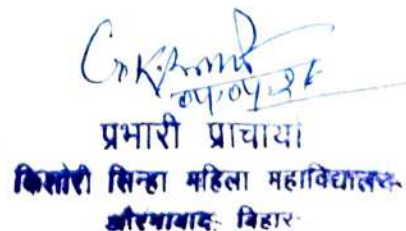 प्रभारी प्राचार्या
किशोरी सिन्हा महिला महाविद्यालय
औरंगाबाद, बिहार